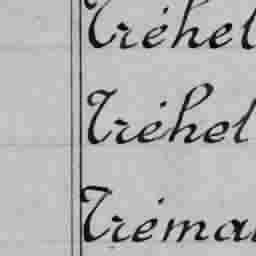 Tréhel
Tréhel
Tréma